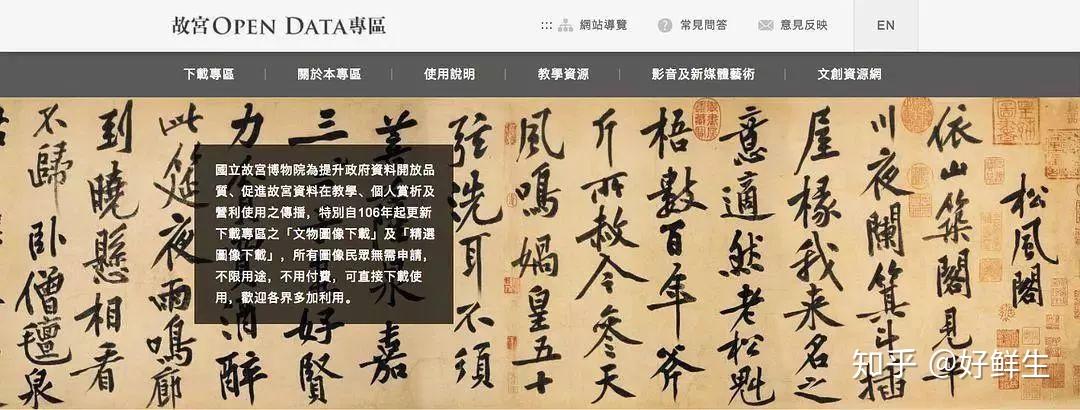 故宮OPEN DATA專區
網站導覽
常見問答
意見反映
EN
下載專區
關於本專區
使用說明
教學資源
影音及新媒體藝術
文創資源網
國立故宮博物院為提升政府資料開放品
質、促進故宮資料在教學、個人賞析及
營利使用之傳播，特別自106年起更新
下載專區之「文物圖像下載」及「精選
圖像下載」，所有圖像民眾無需申請，
不限用途，不用付費，可直接下載使
用，歡迎各界多加利用。
松風閣
依山築閣見平
川夜闌箕斗插
屋椽我来名之
意適然老松魁
梧數百年斧
斤所赦今參天
風鳴媧皇五十
弦洗耳不須
菩泉嘉
三好賢
力酒醉
此筵夜雨鳴廊
到曉懸相看
不歸臥僧氈泉
知乎 @好鲜生